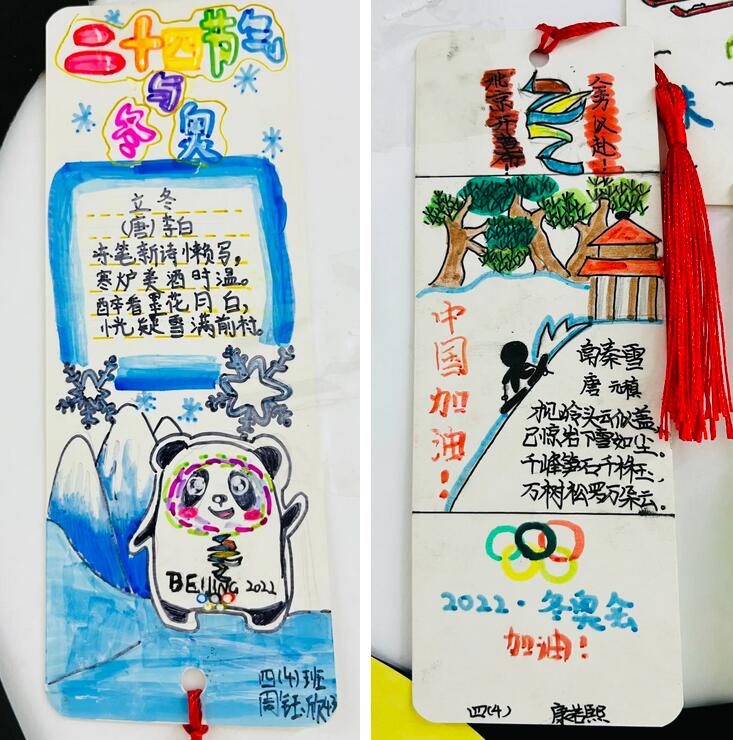 二十四节气
与
冬奥
立冬
(唐)李白
冻笔新诗懒写,
寒炉美酒时温。
醉看墨花月白,
恍疑雪满前村。
BEIJING 2022
四(4)班
周钰欣
北京开幕!
全力以赴!
中国加油!
南秦雪
唐 元稹
才见岭头云似盖,
已惊岩下雪如尘。
千峰笋石千株玉,
万树松萝万朵云。
2022·冬奥会
加油!
四(4) 康若熙